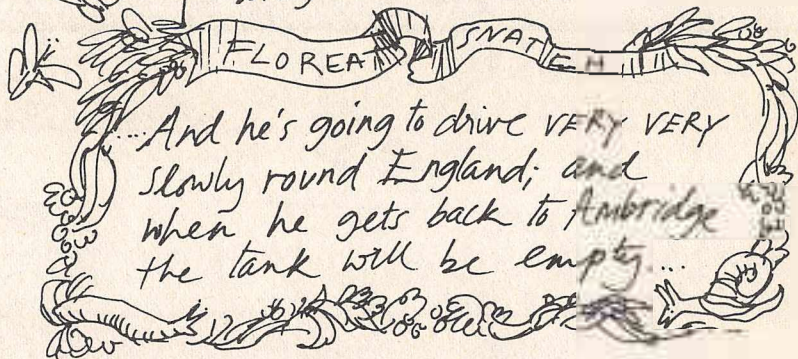 FLOREAT SNATCH
....And he's going to drive VERY VERY
slowly round England; and
when he gets back to Ambridge
the tank will be empty....